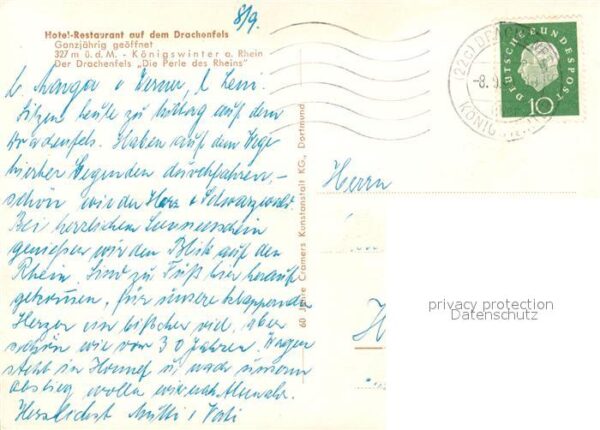 8/9.
Hotel-Restaurant auf dem Drachenfels
Ganzjährig geöffnet
327 m ü. d. M. - Königswinter a. Rhein
Der Drachenfels „Die Perle des Rheins"
L. Marga + Werner, l. Heini.
Sitzen heute zu Mittag auf dem
Drachenfels. Haben auf dem Wege
hierher Gegenden durchfahren, –
schön wie der Harz + Schwarzwald.
Bei herrlichem Sonnenschein
genießen wir den Blick auf den
Rhein. Sind zu Fuß hier herauf
gekommen, für unsere klappernden
Herzen ein bißchen viel, aber
schön wie vor 30 Jahren. Wagen
steht in Honnef u. nach unserm
Abstieg wollen wir nach Ahrweiler.
Herzlichst Mutti + Vati
60 Jahre Cramers Kunstanstalt KG., Dortmund
DEUTSCHE BUNDESPOST
10
(22c)
-8. 9.
Herrn
privacy protection
Datenschutz